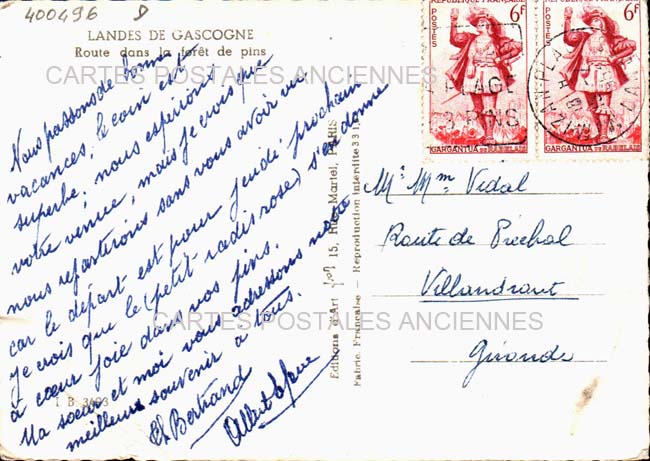 400496
LANDES DE GASCOGNE
Route dans la forêt de pins
CARTES POSTALES ANCIENNES
Nous passons de bonnes
vacances, le coin est
superbe; nous espérions
votre venue, mais je crois que
nous repartirons sans vous avoir vu
car le départ est pour jeudi prochain
je crois que le (petit radis rose) s'en donne
à cœur joie dans vos pins.
Ma sœur et moi vous adressons notre
meilleur souvenir à tous.
Bertrand
I B 3603
Editions d'Art 15, Rue Martel, PARIS
Fabric. Française - Reproduction Interdite
REPUBLIQUE FRANÇAISE
POSTES
6F
GARGANTUA DE RABELAIS
REPUBLIQUE FRANÇAISE
POSTES
6F
GARGANTUA DE RABELAIS
PLAGE
PINS
Mr Mme Vidal
Route de Préchac
Villandraut
Gironde
CARTES POSTALES ANCIENNES